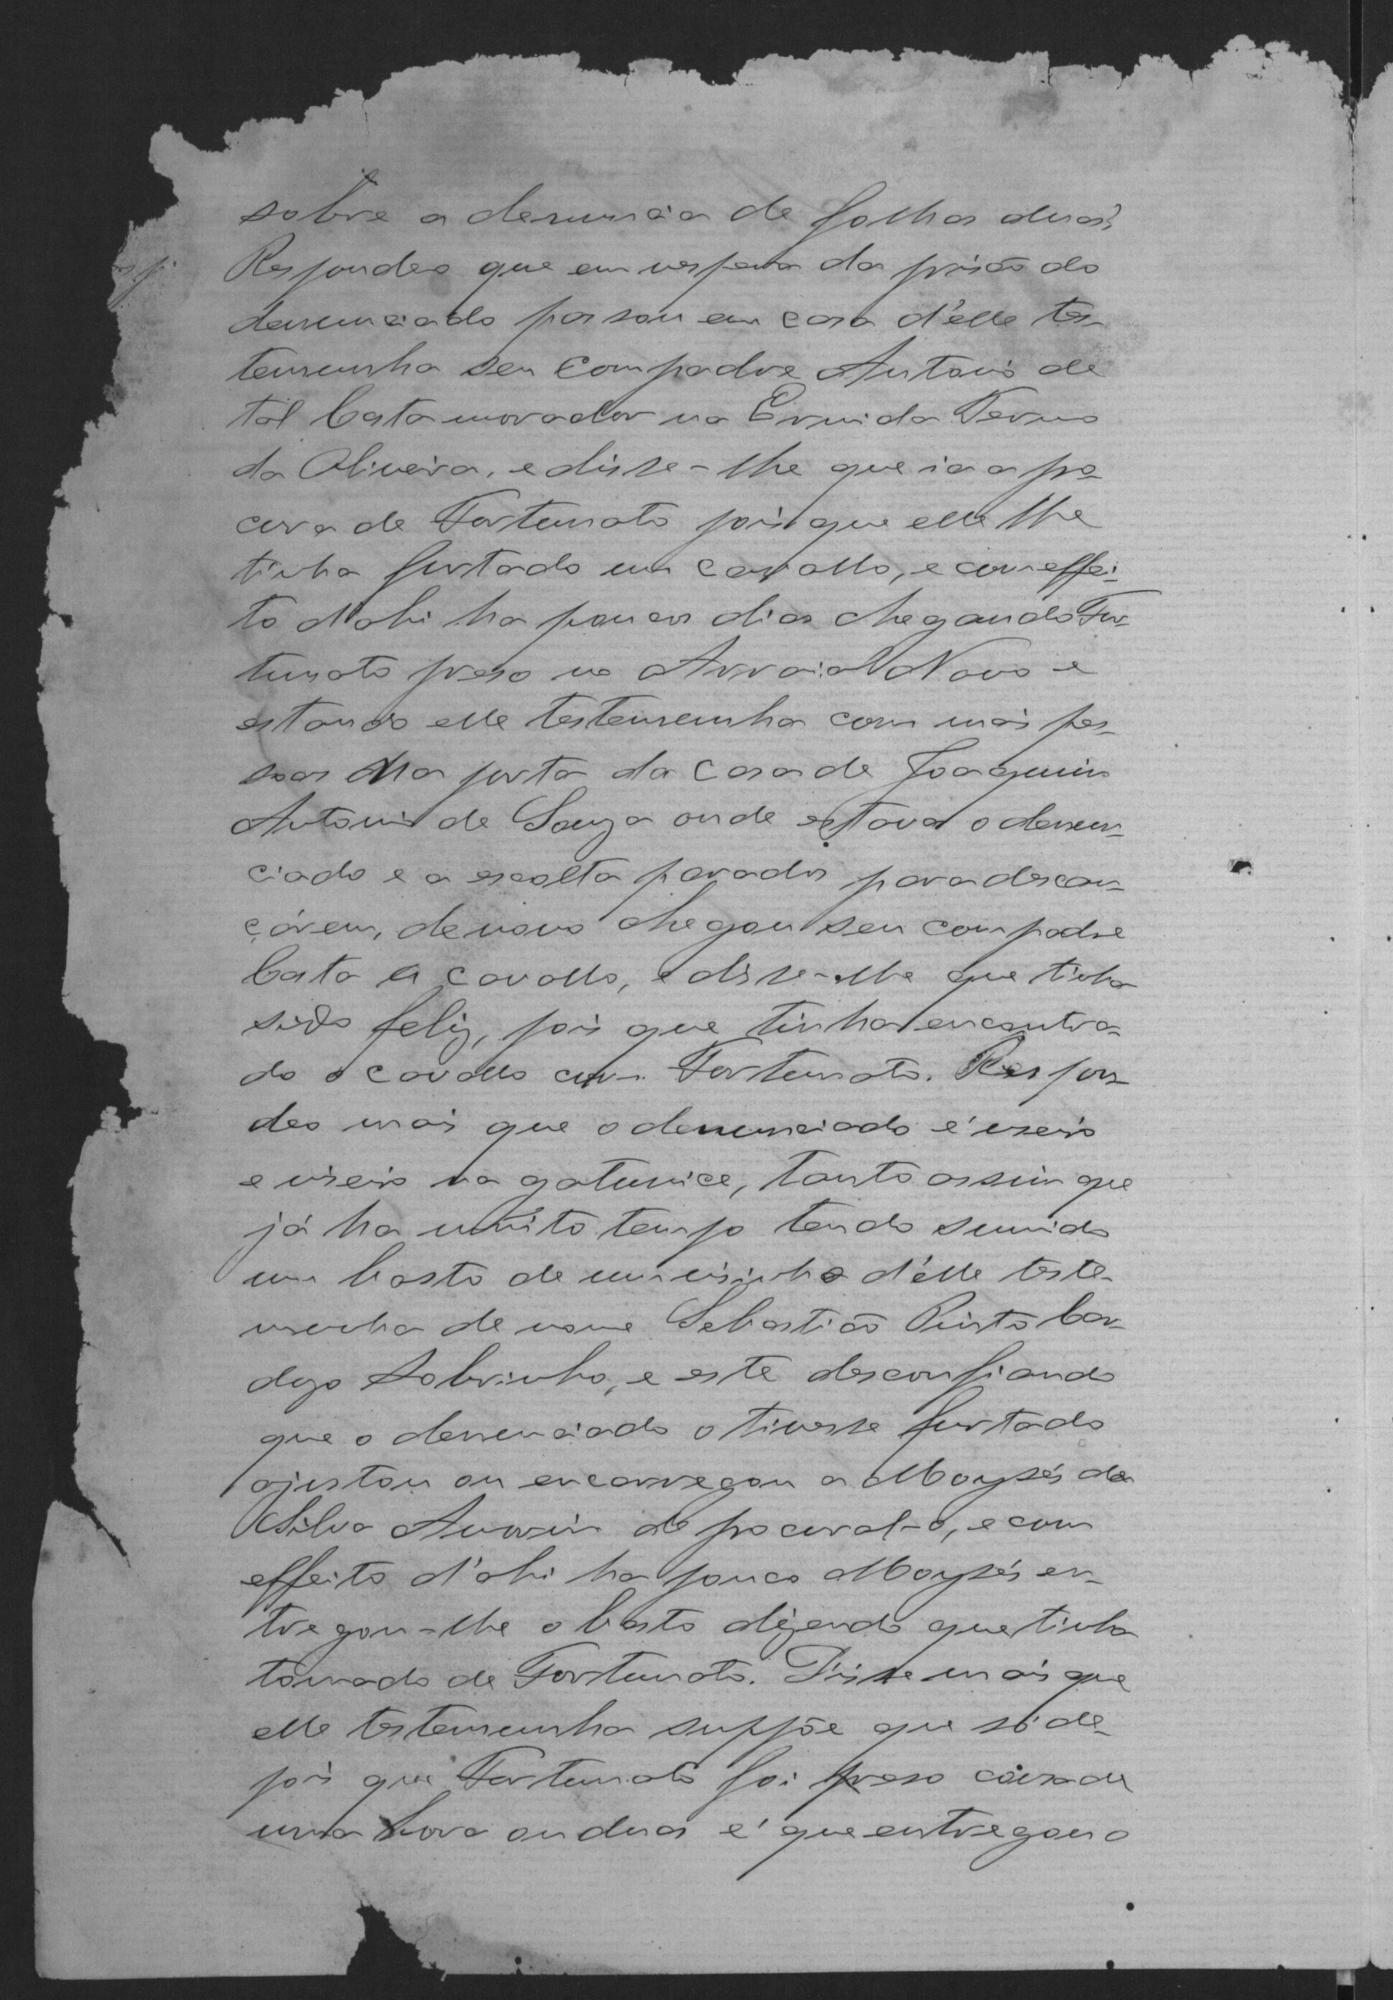 sobre a denuncia de folhas duas?
Respondeo que em vespera da prisão do
denunciado passou em casa d'elle tes-
temunha seu compadre Antonio de
tal Costa morador na Ermida Termo
da Oliveira, e disse-lhe que ia a pro-
cura de Fortunato pois que elle lhe
tinha furtado um cavallo, e com effei-
to d'ahi ha poucos dias chegando For-
tunato preso no Arraial Novo e
estando elle testemunha com mais pes-
soas na porta da casa de Joaquim
Antonio de Souza onde estava o denun-
ciado e a escolta parados para descan-
çárem, de novo chegou seu compadre
Costa a cavallo, e disse-lhe que tinha
sido feliz, pois que tinha encontra-
do o cavallo com Fortunato. Respon-
deo mais que o denunciado é useiro
e viseiro na gatunice, tanto assim que
já ha muito tempo tendo sumido
um basto de um visinho d'elle teste-
munha de nome Sebastião Pinto Car-
dozo Sobrinho, e este desconfiando
que o denunciado o tivesse furtado
ajustou ou encarregou a Moysés da
Silva Amorim de procural-o, e com
effeito d'ahi ha pouco Moysés en-
tregou-lhe o basto dizendo que tinha
tomado de Fortunato. Disse mais que
elle testemunha suppõe que só de-
pois que Fortunato foi preso cousa de
uma hora ou duas é que entregou o